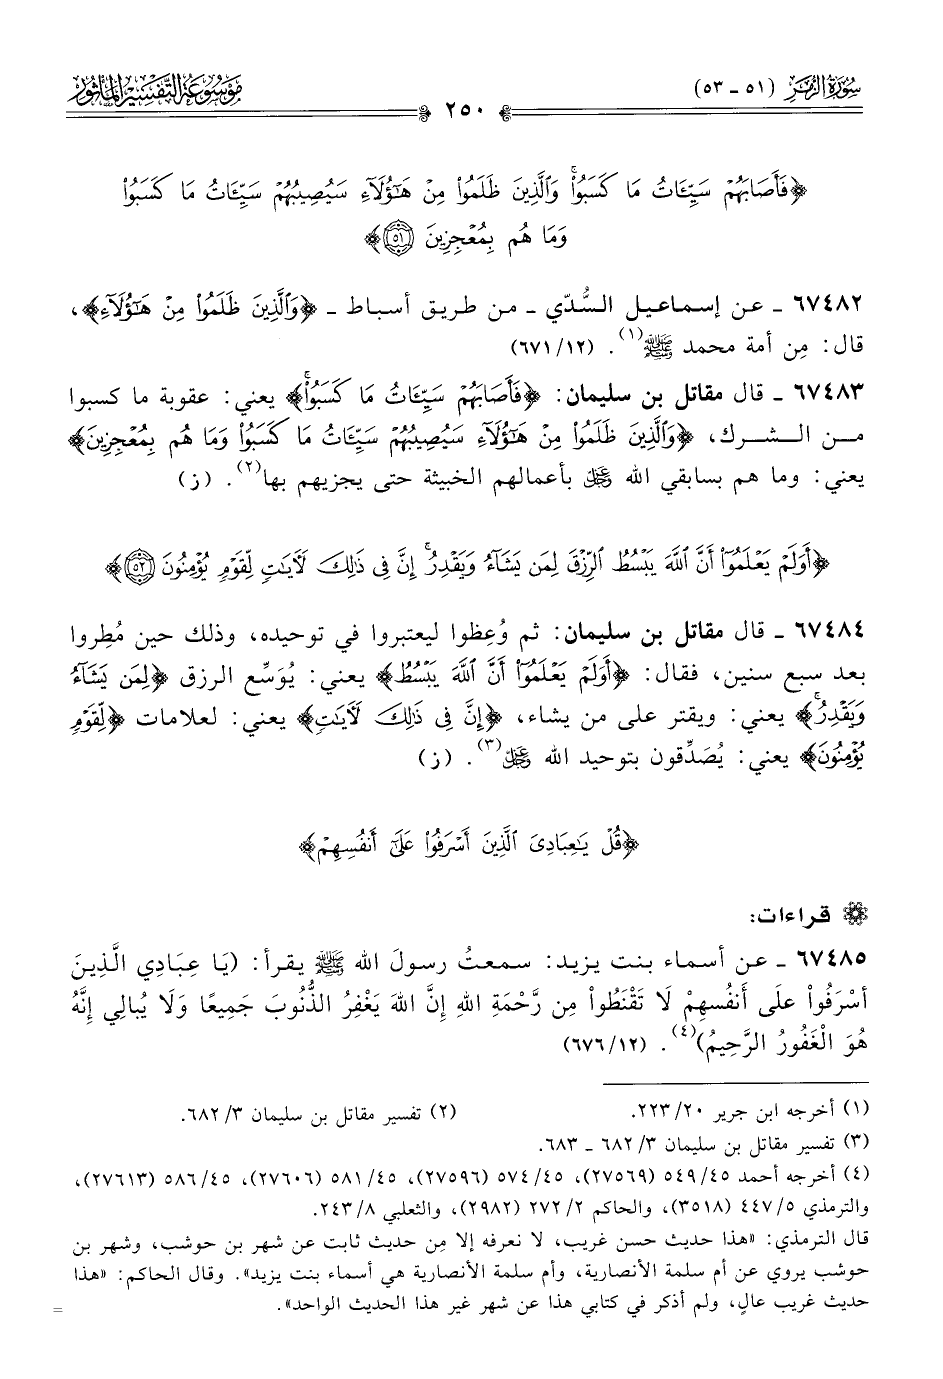 سورة الزمر (٥١ - ٥٣)
موسوعة التفسير المأثور
٢٥٠
﴿فَأَصَابَهُمْ سَيِّئَاتُ مَا كَسَبُوا۟ ۚ وَٱلَّذِينَ ظَلَمُوا۟ مِنْ هَـٰٓؤُلَآءِ سَيُصِيبُهُمْ سَيِّئَاتُ مَا كَسَبُوا۟
وَمَا هُم بِمُعْجِزِينَ ٥١﴾
٦٧٤٨٢ - عن إسماعيل السُّدّي - من طريق أسباط - ﴿وَٱلَّذِينَ ظَلَمُوا۟ مِنْ هَـٰٓؤُلَآءِ﴾،
قال: مِن أمة محمد ﷺ(١). (٦٧١/١٢)
٦٧٤٨٣ - قال مقاتل بن سليمان: ﴿فَأَصَابَهُمْ سَيِّئَاتُ مَا كَسَبُوا۟ ۚ﴾ يعني: عقوبة ما كسبوا
من الشرك، ﴿وَٱلَّذِينَ ظَلَمُوا۟ مِنْ هَـٰٓؤُلَآءِ سَيُصِيبُهُمْ سَيِّئَاتُ مَا كَسَبُوا۟ وَمَا هُم بِمُعْجِزِينَ﴾
يعني: وما هم بسابقي الله ﷻ بأعمالهم الخبيثة حتى يجزيهم بها(٢). (ز)
﴿أَوَلَمْ يَعْلَمُوٓا۟ أَنَّ ٱللَّهَ يَبْسُطُ ٱلرِّزْقَ لِمَن يَشَآءُ وَيَقْدِرُ ۚ إِنَّ فِى ذَٰلِكَ لَـَٔايَـٰتٍ لِّقَوْمٍ يُؤْمِنُونَ ٥٢﴾
٦٧٤٨٤ - قال مقاتل بن سليمان: ثم وُعِظوا ليعتبروا في توحيده، وذلك حين مُطِروا
بعد سبع سنين، فقال: ﴿أَوَلَمْ يَعْلَمُوٓا۟ أَنَّ ٱللَّهَ يَبْسُطُ﴾ يعني: يُوَسِّع الرزق ﴿لِمَن يَشَآءُ
وَيَقْدِرُ ۚ﴾ يعني: ويقتر على من يشاء، ﴿إِنَّ فِى ذَٰلِكَ لَـَٔايَـٰتٍ﴾ يعني: لعلامات ﴿لِّقَوْمٍ
يُؤْمِنُونَ﴾ يعني: يُصَدِّقون بتوحيد الله ﷻ(٣). (ز)
﴿قُلْ يَـٰعِبَادِىَ ٱلَّذِينَ أَسْرَفُوا۟ عَلَىٰٓ أَنفُسِهِمْ﴾
قراءات:
٦٧٤٨٥ - عن أسماء بنت يزيد: سمعتُ رسولَ الله ﷺ يقرأ: (يَا عِبَادِي الَّذِينَ
أَسْرَفُواْ عَلَى أَنفُسِهِمْ لَا تَقْنَطُواْ مِن رَّحْمَةِ اللهِ إِنَّ اللهَ يَغْفِرُ الذُّنُوبَ جَمِيعًا وَلَا يُبالِي إِنَّهُ
هُوَ الْغَفُورُ الرَّحِيمُ)(٤). (٦٧٦/١٢)
(١) أخرجه ابن جرير ٢٢٣/٢٠. (٢) تفسير مقاتل بن سليمان ٦٨٢/٣.
(٣) تفسير مقاتل بن سليمان ٦٨٢/٣ - ٦٨٣.
(٤) أخرجه أحمد ٥٤٩/٤٥ (٢٧٥٦٩)، ٥٧٤/٤٥ (٢٧٥٩٦)، ٥٨١/٤٥ (٢٧٦٠٦)، ٥٨٦/٤٥ (٢٧٦١٣)،
والترمذي ٤٤٧/٥ (٣٥١٨)، والحاكم ٢٧٢/٢ (٢٩٨٢)، والثعلبي ٢٤٣/٨.
قال الترمذي: «هذا حديث حسن غريب، لا نعرفه إلا مِن حديث ثابت عن شهر بن حوشب، وشهر بن
حوشب يروي عن أم سلمة الأنصارية، وأم سلمة الأنصارية هي أسماء بنت يزيد». وقال الحاكم: «هذا
حديث غريب عالٍ، ولم أذكر في كتابي هذا عن شهر غير هذا الحديث الواحد».
=